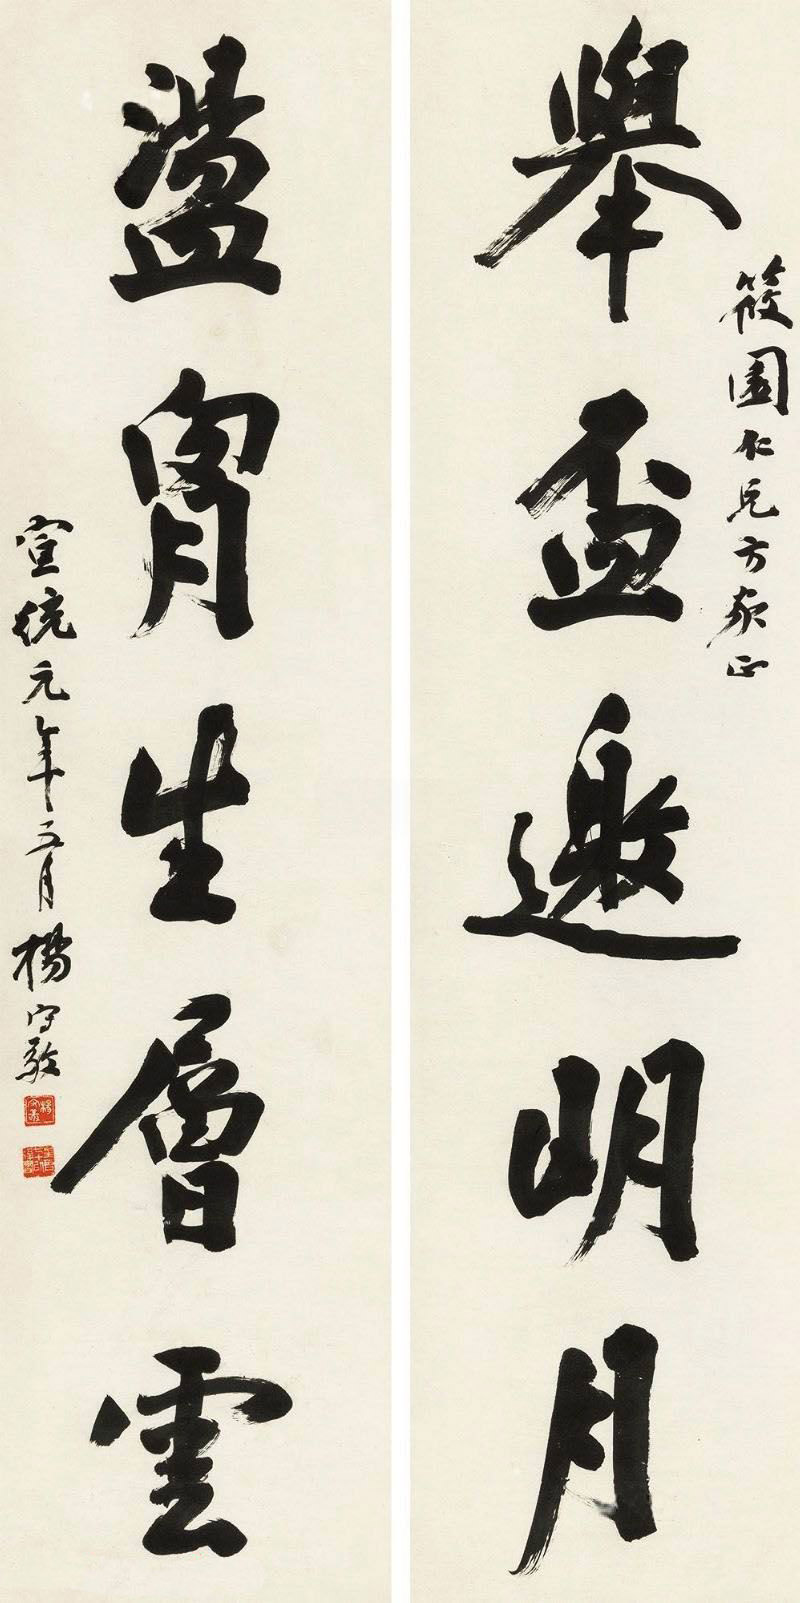 舉盃邀明月
筱園仁兄方家正
盪胷生層雲
宣統元年十二月
楊守敬